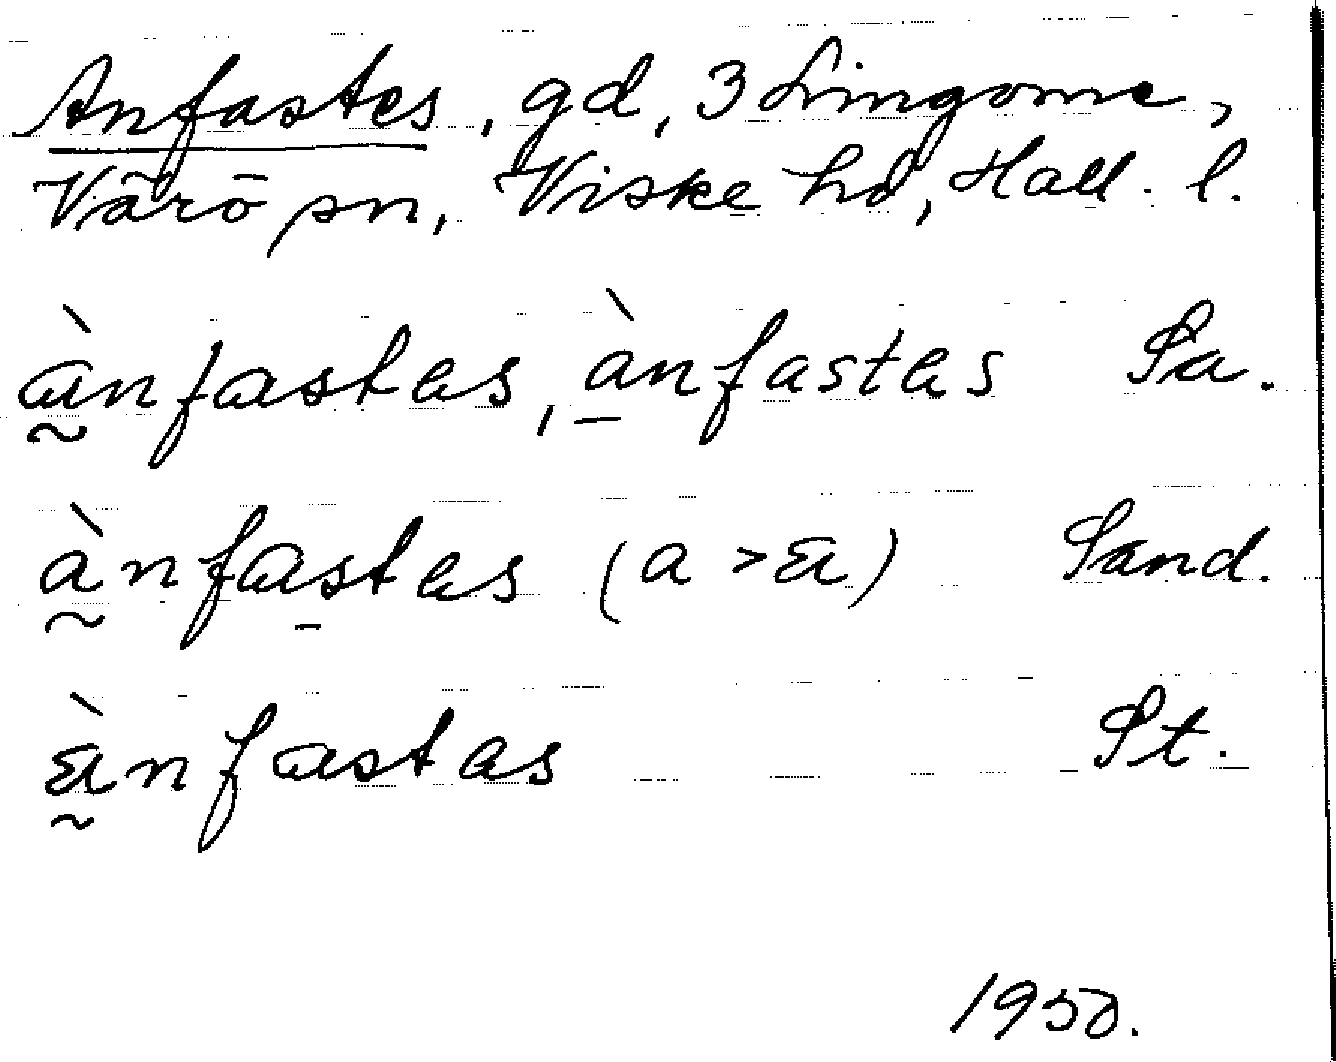 Anfastes, gd, 3 Lingome,
Värö sn, Viske hd, Hall. l.
ànfastas, ànfastas Sa.
ànfastas (a > a) Sand.
ànfastas St.
1950.